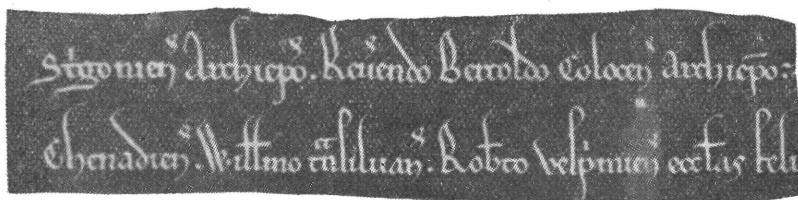 Stⁱgonien̄ Archiep̄o. Reu͛endo Bertoldo Colocen̄ Archiep̄o:
Chenadien̄. Willl̄mo tᵃnsiluan̄. Rob̄to vespⁱmien̄ eccl̄as feli